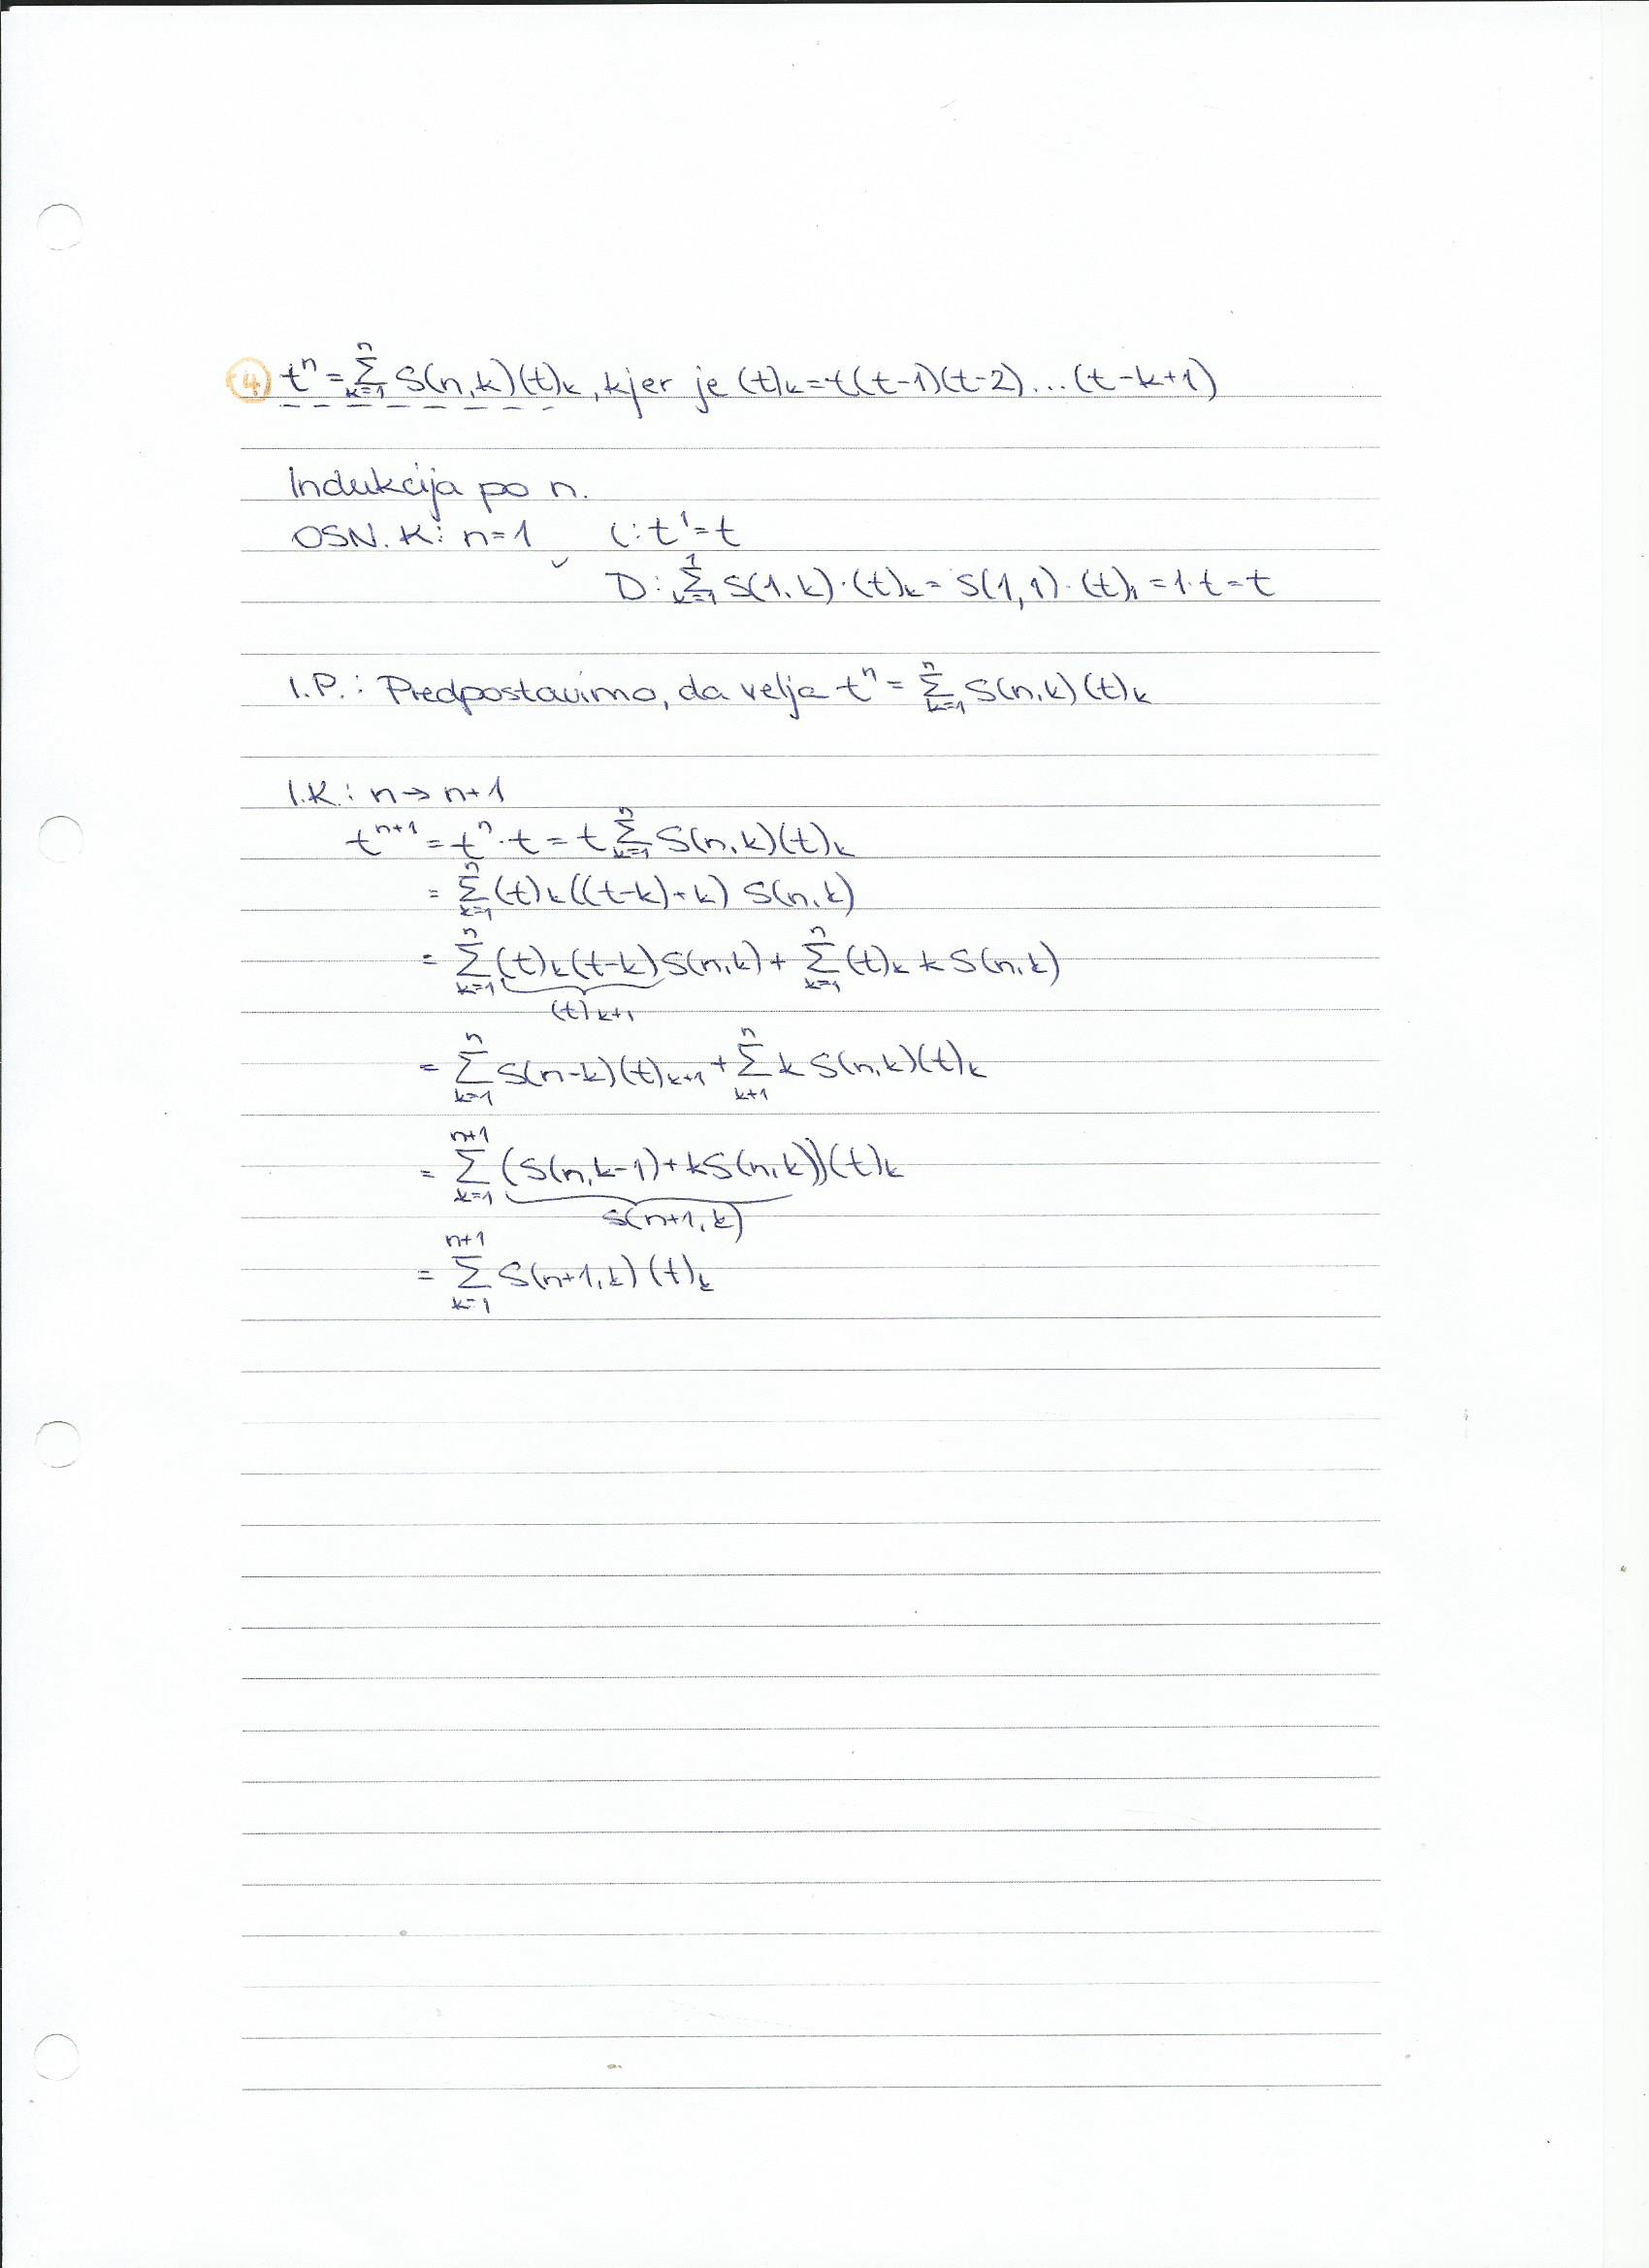 4. t^n = Σ_{k=1}^{n} S(n,k)(t)_k, kjer je (t)_k = t(t-1)(t-2)...(t-k+1)
Indukcija po n.
OSN. K: n=1 ✓ L: t^1 = t
D: Σ_{k=1}^{1} S(1,k)·(t)_k = S(1,1)·(t)_1 = 1·t = t
I.P.: Predpostavimo, da velja t^n = Σ_{k=1}^{n} S(n,k)(t)_k
I.K.: n → n+1
t^{n+1} = t^n · t = t Σ_{k=1}^{n} S(n,k)(t)_k
= Σ_{k=1}^{n} (t)_k((t-k)+k) S(n,k)
= Σ_{k=1}^{n} (t)_k(t-k) S(n,k) + Σ_{k=1}^{n} (t)_k k S(n,k)
(t)_{k+1}
= Σ_{k=1}^{n} S(n-k)(t)_{k+1} + Σ_{k+1}^{n} k S(n,k)(t)_k
= Σ_{k=1}^{n+1} (S(n,k-1)+kS(n,k))(t)_k
S(n+1,k)
= Σ_{k=1}^{n+1} S(n+1,k)(t)_k